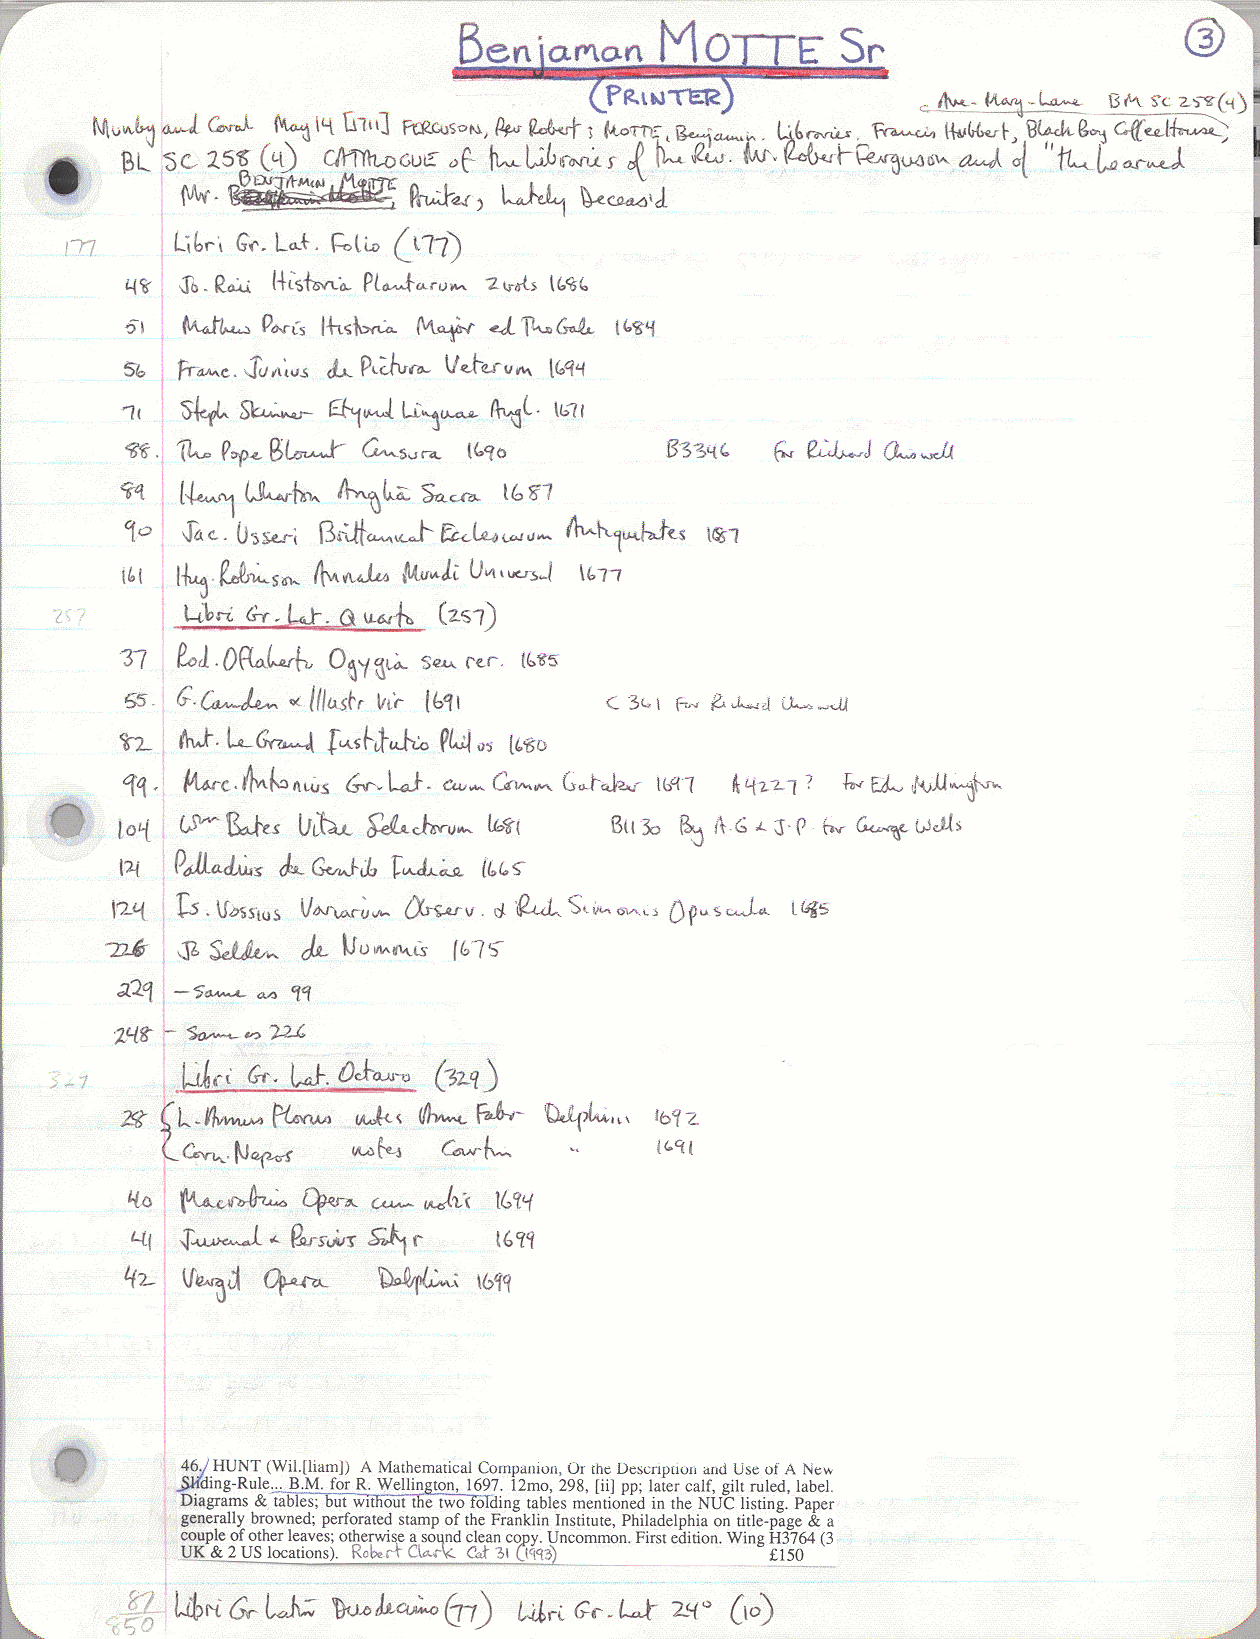 Benjaman MOTTE Sr
③
(PRINTER)
Ave-Mary-Lane BM SC 258(4)
Munby and Coral May 14 [1711] FERGUSON, Rev Robert; MOTTE, Benjamin. Libraries. Francis Hubbert, Black Boy Coffee House,
BL SC 258 (4) CATALOGUE of the Libraries of the Rev. Mr. Robert Ferguson and of "the Learned
BENJAMIN MOTTE
Mr. , Printer, Lately Deceas'd
177 Libri Gr. Lat. Folio (177)
48 Jo. Raii Historia Plantarum 2 vols 1686
51 Mathew Paris Historia Major ed Tho Gale 1684
56 Franc. Junius de Pictura Veterum 1694
71 Steph Skinner Etymol Linguae Angl. 1671
88. Tho Pope Blount Censura 1690 B3346 For Richard Chiswell
89 Henry Wharton Anglia Sacra 1687
90 Jac. Usseri Brittanicat Ecclesiarum Antiquitates 1687
161 Hug. Robinson Annales Mundi Universal 1677
257 Libri Gr. Lat. Quarto (257)
37 Rod. Oflaherti Ogygia seu rer. 1685
55. G. Camden & Illustr Vir 1691 C 361 For Richard Chiswell
82 Ant. Le Grand Institutio Philos 1680
99. Marc. Antonius Gr. Lat. cum Comm Gataker 1697 A4227? For Edw Millington
104 Wm Bates Vitae Selectorum 1681 B1130 By A.G & J.P. for George Wells
121 Palladius de Gentib Indiae 1665
124 Is. Vossius Variarum Observ. & Rich Simonis Opuscula 1685
226 Jo Selden de Nummis 1675
229 - Same as 99
248 - Same as 226
329 Libri Gr. Lat. Octavo (329)
28 { L. Annus Florus notes Anne Fabr Delphini 1692
Corn. Nepos notes Courtin " 1691
40 Macrobius Opera cum notis 1694
41 Juvenal & Persius Satyr 1699
42 Vergil Opera Delphini 1699
46. HUNT (Wil.[liam]) A Mathematical Companion, Or the Description and Use of A New
Sliding-Rule... B.M. for R. Wellington, 1697. 12mo, 298, [ii] pp; later calf, gilt ruled, label.
Diagrams & tables; but without the two folding tables mentioned in the NUC listing. Paper
generally browned; perforated stamp of the Franklin Institute, Philadelphia on title-page & a
couple of other leaves; otherwise a sound clean copy. Uncommon. First edition. Wing H3764 (3
UK & 2 US locations). Robert Clark Cat 31 (1993) £150
87 Libri Gr Latin Duodecimo (77) Libri Gr. Lat 24° (10)
850